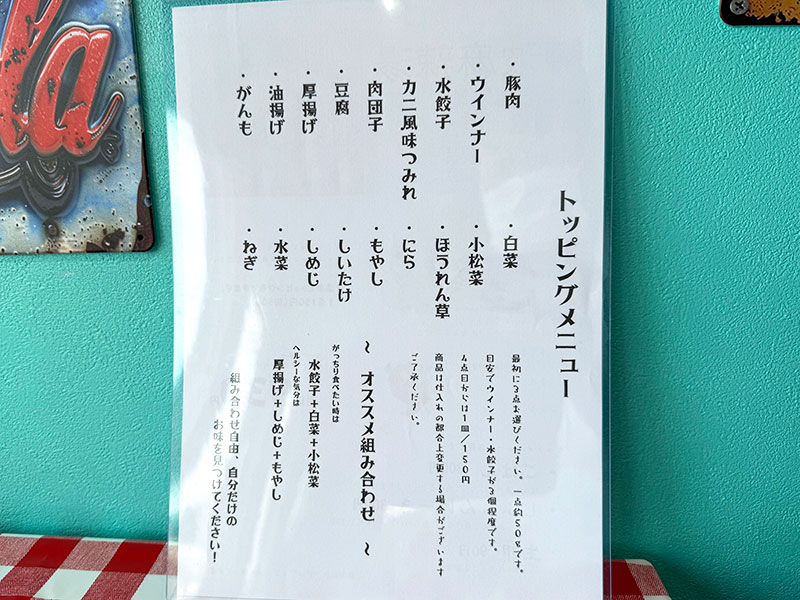 トッピングメニュー
・豚肉
・ウインナー
・水餃子
・カニ風味つみれ
・肉団子
・豆腐
・厚揚げ
・油揚げ
・がんも
・白菜
・小松菜
・ほうれん草
・にら
・もやし
・しいたけ
・しめじ
・水菜
・ねぎ
最初に3点お選びください。一点約50gです。
目安でウインナー・水餃子が3個程度です。
4点目からは1皿/150円
商品は仕入れの都合上変更する場合がございます
ご了承ください。
～ オススメ組み合わせ ～
がっちり食べたい時は
水餃子+白菜+小松菜
ヘルシーな気分は
厚揚げ+しめじ+もやし
組み合わせ自由、自分だけの
お味を見つけてください!